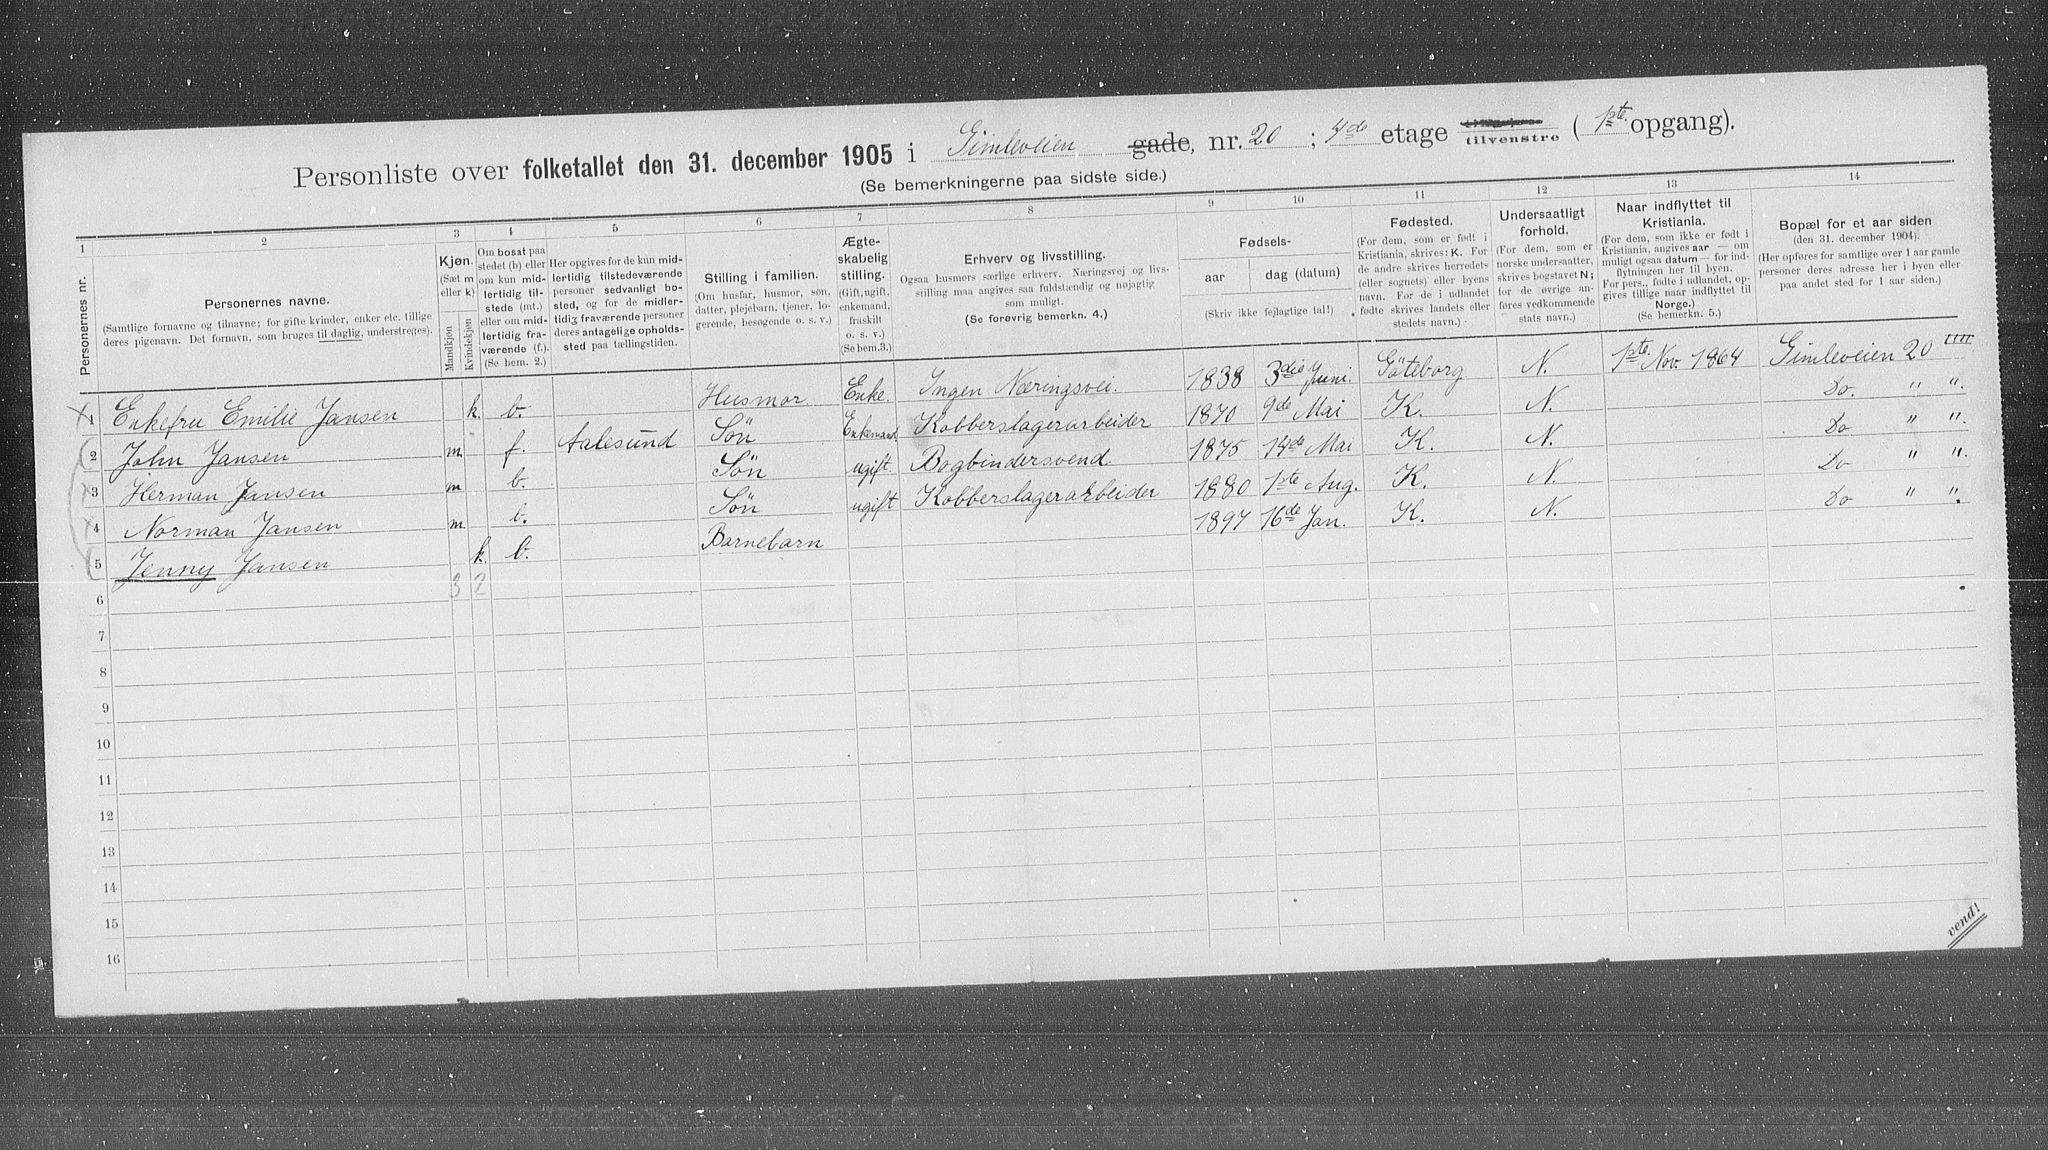 Personliste over folketallet den 31. december 1905 i Gimleveien gade, nr. 20 ; 4de etage tilvenstre ( 1ste opgang).
(Se bemerkningerne paa sidste side.)
1 2 3 4 5 6 7 8 9 10 11 12 13 14
Personernes nr.
Personernes navne.
(Samtlige fornavne og tilnavne; for gifte kvinder, enker etc. tillige
deres pigenavn. Det fornavn, som bruges til daglig, understreges).
Kjøn.
(Sæt m
eller k)
Mandkjøn
Kvindekjøn
Om bosat paa
stedet (b) eller
om kun mid-
lertidig til-
stede (mt.)
eller om mid-
lertidig fra-
værende (f.).
(Se bem. 2.)
Her opgives for de kun mid-
lertidig tilstedeværende
personer sedvanligt bo-
sted, og for de midler-
tidig fraværende personer
deres antagelige opholds-
sted paa tællingstiden.
Stilling i familien.
(Om husfar, husmor, søn,
datter, plejebarn, tjener, lo-
gerende, besøgende o. s. v.)
Ægte-
skabelig
stilling.
(Gift, ugift,
enkemand,
fraskilt
o. s. v.)
(Se bem.3.)
Erhverv og livsstilling.
Ogsaa husmors særlige erhverv. Næringsvej og livs-
stilling maa angives saa fuldstændig og nøjagtig
som muligt.
(Se forøvrig bemerkn. 4.)
Fødsels-
aar dag (datum)
(Skriv ikke fejlagtige tal!)
Fødested.
(For dem, som er født i
Kristiania, skrives: K. For
de andre skrives herredets
(eller sognets) eller byens
navn. For de i udlandet
fødte skrives landets eller
stedets navn.)
Undersaatligt
forhold.
(For dem, som er
norske undersaatter,
skrives bogstavet N;
for de øvrige an-
føres vedkommende
stats navn.)
Naar indflyttet til
Kristiania.
(For dem, som ikke er født i
Kristiania, angives aar — om
muligt ogsaa datum — for ind-
flytningen her til byen.
For pers., fødte i udlandet, op-
gives tillige naar indflyttet til
Norge.)
(Se bemerkn. 5.)
Bopæl for et aar siden
(den 31. december 1904).
(Her opføres for samtlige over 1 aar gamle
personer deres adresse her i byen eller
paa andet sted for 1 aar siden.)
1 Enkefru Emilie Jansen k. b. Husmor Enke. Ingen Næringsvei. 1838 3die Juni. Göteborg N. 1ste Nov. 1864 Gimleveien 20
2 John Jansen m. f. Aalesund Søn Enkemand Kobberslagerarbeider 1870 9de Mai K. N. Do. " ".
3 Herman Jansen m b. Søn ugift. Bogbindersvend. 1875 14de Mai K. N. Do " ".
4 Norman Jansen m. b. Søn ugift Kobberslagerarbeider 1880 1ste Aug. K. N. Do " ".
5 Jenny Jansen k. b. Barnebarn 1897 16de Jan. K. N. Do " ".
6 3 2
7
8
9
10
11
12
13
14
15
16
vend!